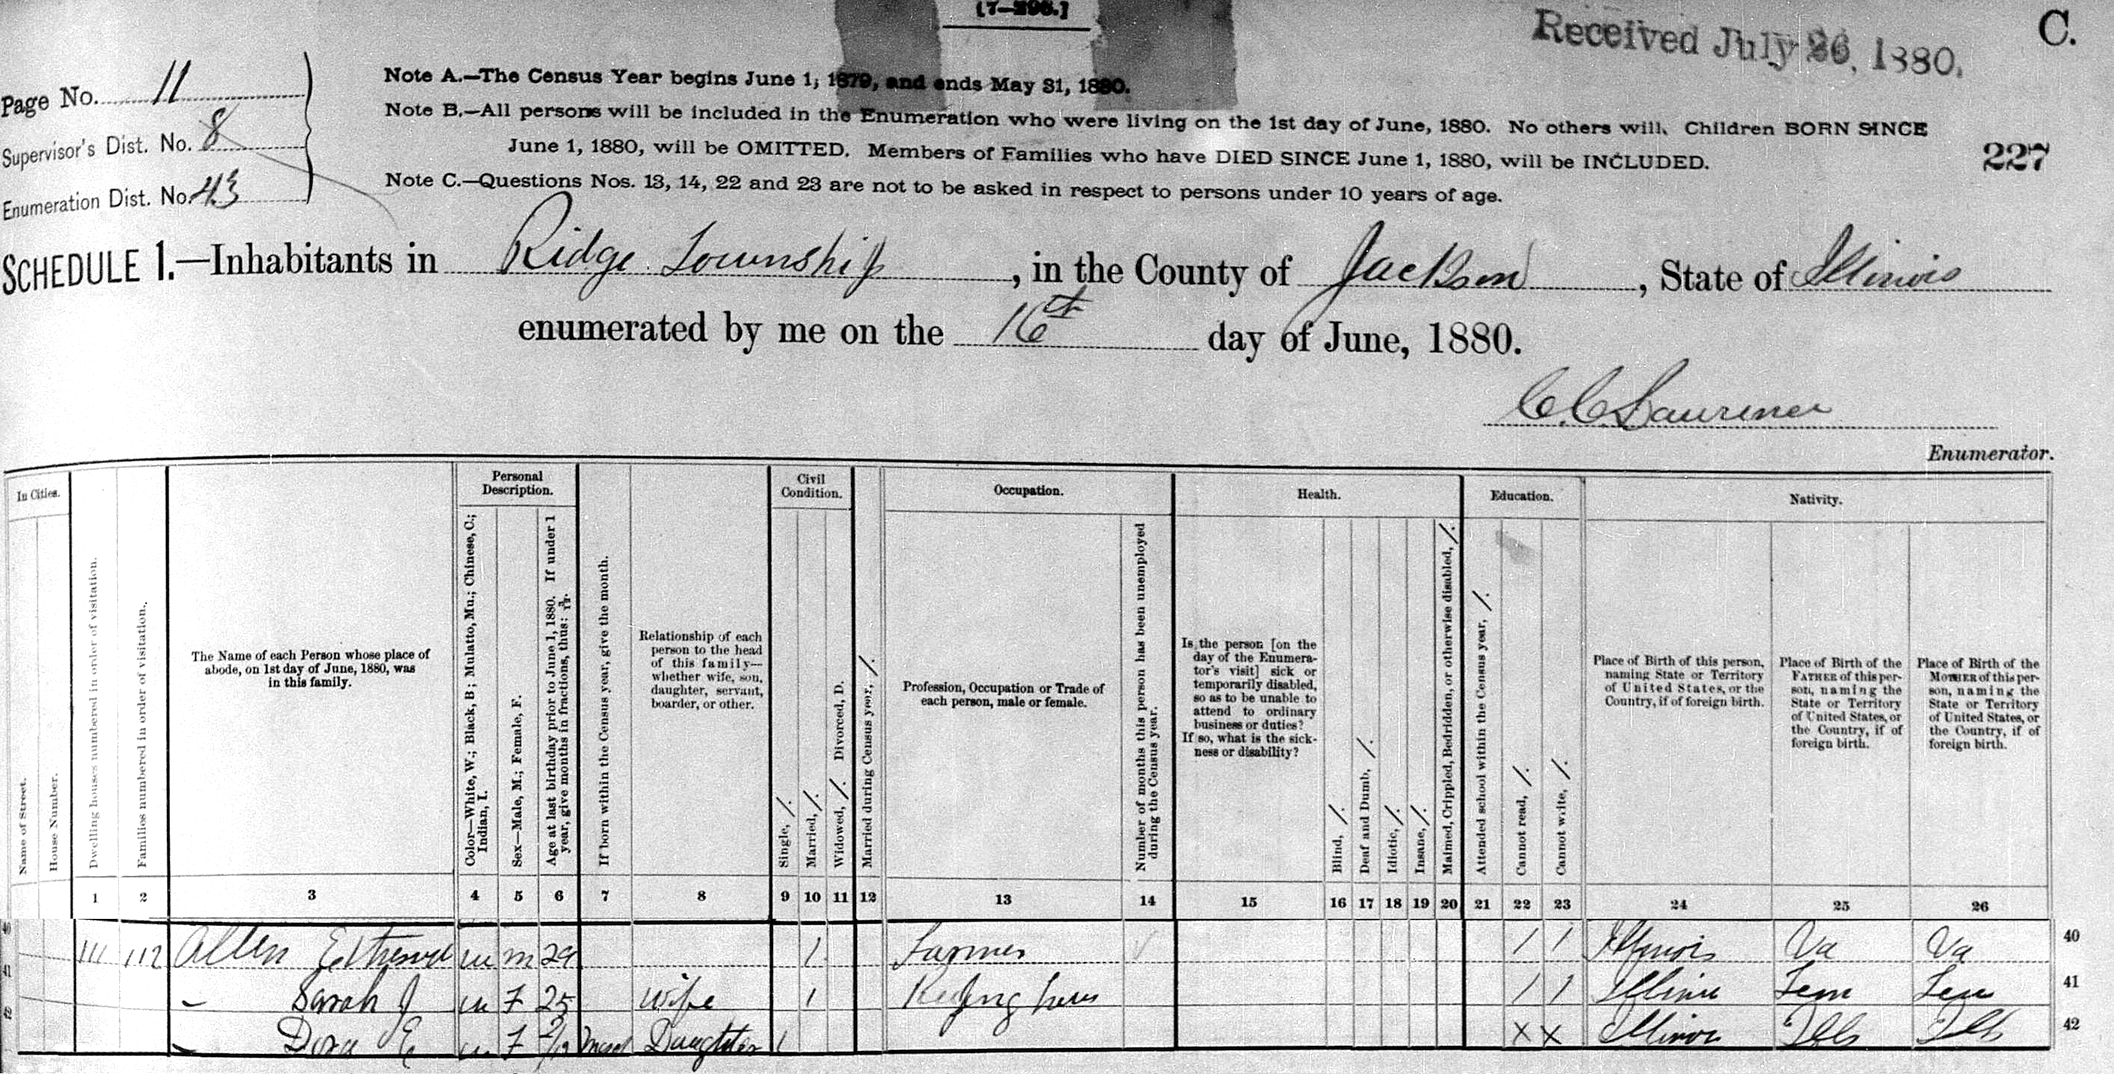 [7—296.]
Received July 26, 1880.
C.
Page No. 11
Supervisor's Dist. No. 8
Enumeration Dist. No. 43
Note A.—The Census Year begins June 1, 1879, and ends May 31, 1880.
Note B.—All persons will be included in the Enumeration who were living on the 1st day of June, 1880. No others will. Children BORN SINCE
June 1, 1880, will be OMITTED. Members of Families who have DIED SINCE June 1, 1880, will be INCLUDED.
Note C.—Questions Nos. 13, 14, 22 and 23 are not to be asked in respect to persons under 10 years of age.
227
SCHEDULE 1.—Inhabitants in Ridge Township, in the County of Jackson, State of Illinois
enumerated by me on the 16th day of June, 1880.
C. C. Laurence
Enumerator.
In Cities.
Name of Street.
House Number.
Dwelling houses numbered in order of visitation.
Families numbered in order of visitation.
The Name of each Person whose place of
abode, on 1st day of June, 1880, was
in this family.
Personal
Description.
Color—White, W.; Black, B; Mulatto, Mu.; Chinese, C.;
Indian, I.
Sex—Male, M.; Female, F.
Age at last birthday prior to June 1, 1880. If under 1
year, give months in fractions, thus: 3/12.
If born within the Census year, give the month.
Relationship of each
person to the head
of this family—
whether wife, son,
daughter, servant,
boarder, or other.
Civil
Condition.
Single, /.
Married, /.
Widowed, /. Divorced, D.
Married during Census year, /.
Occupation.
Profession, Occupation or Trade of
each person, male or female.
Number of months this person has been unemployed
during the Census year.
Health.
Is the person [on the
day of the Enumera-
tor's visit] sick or
temporarily disabled,
so as to be unable to
attend to ordinary
business or duties?
If so, what is the sick-
ness or disability?
Blind, /.
Deaf and Dumb, /.
Idiotic, /.
Insane, /.
Maimed, Crippled, Bedridden, or otherwise disabled, /.
Education.
Attended school within the Census year, /.
Cannot read, /.
Cannot write, /.
Nativity.
Place of Birth of this person,
naming State or Territory
of United States, or the
Country, if of foreign birth.
Place of Birth of the
FATHER of this per-
son, naming the
State or Territory
of United States, or
the Country, if of
foreign birth.
Place of Birth of the
MOTHER of this per-
son, naming the
State or Territory
of United States, or
the Country, if of
foreign birth.
1 2 3 4 5 6 7 8 9 10 11 12 13 14 15 16 17 18 19 20 21 22 23 24 25 26
40 111 112 Allen W M 29 / Farmer / / Illinois Va Va 40
41 — Sarah J W F 25 Wife / / / Illinois Tenn Tenn 41
42 — Dora E W F 2/12 Daughter / X X Illinois Ills Ills 42